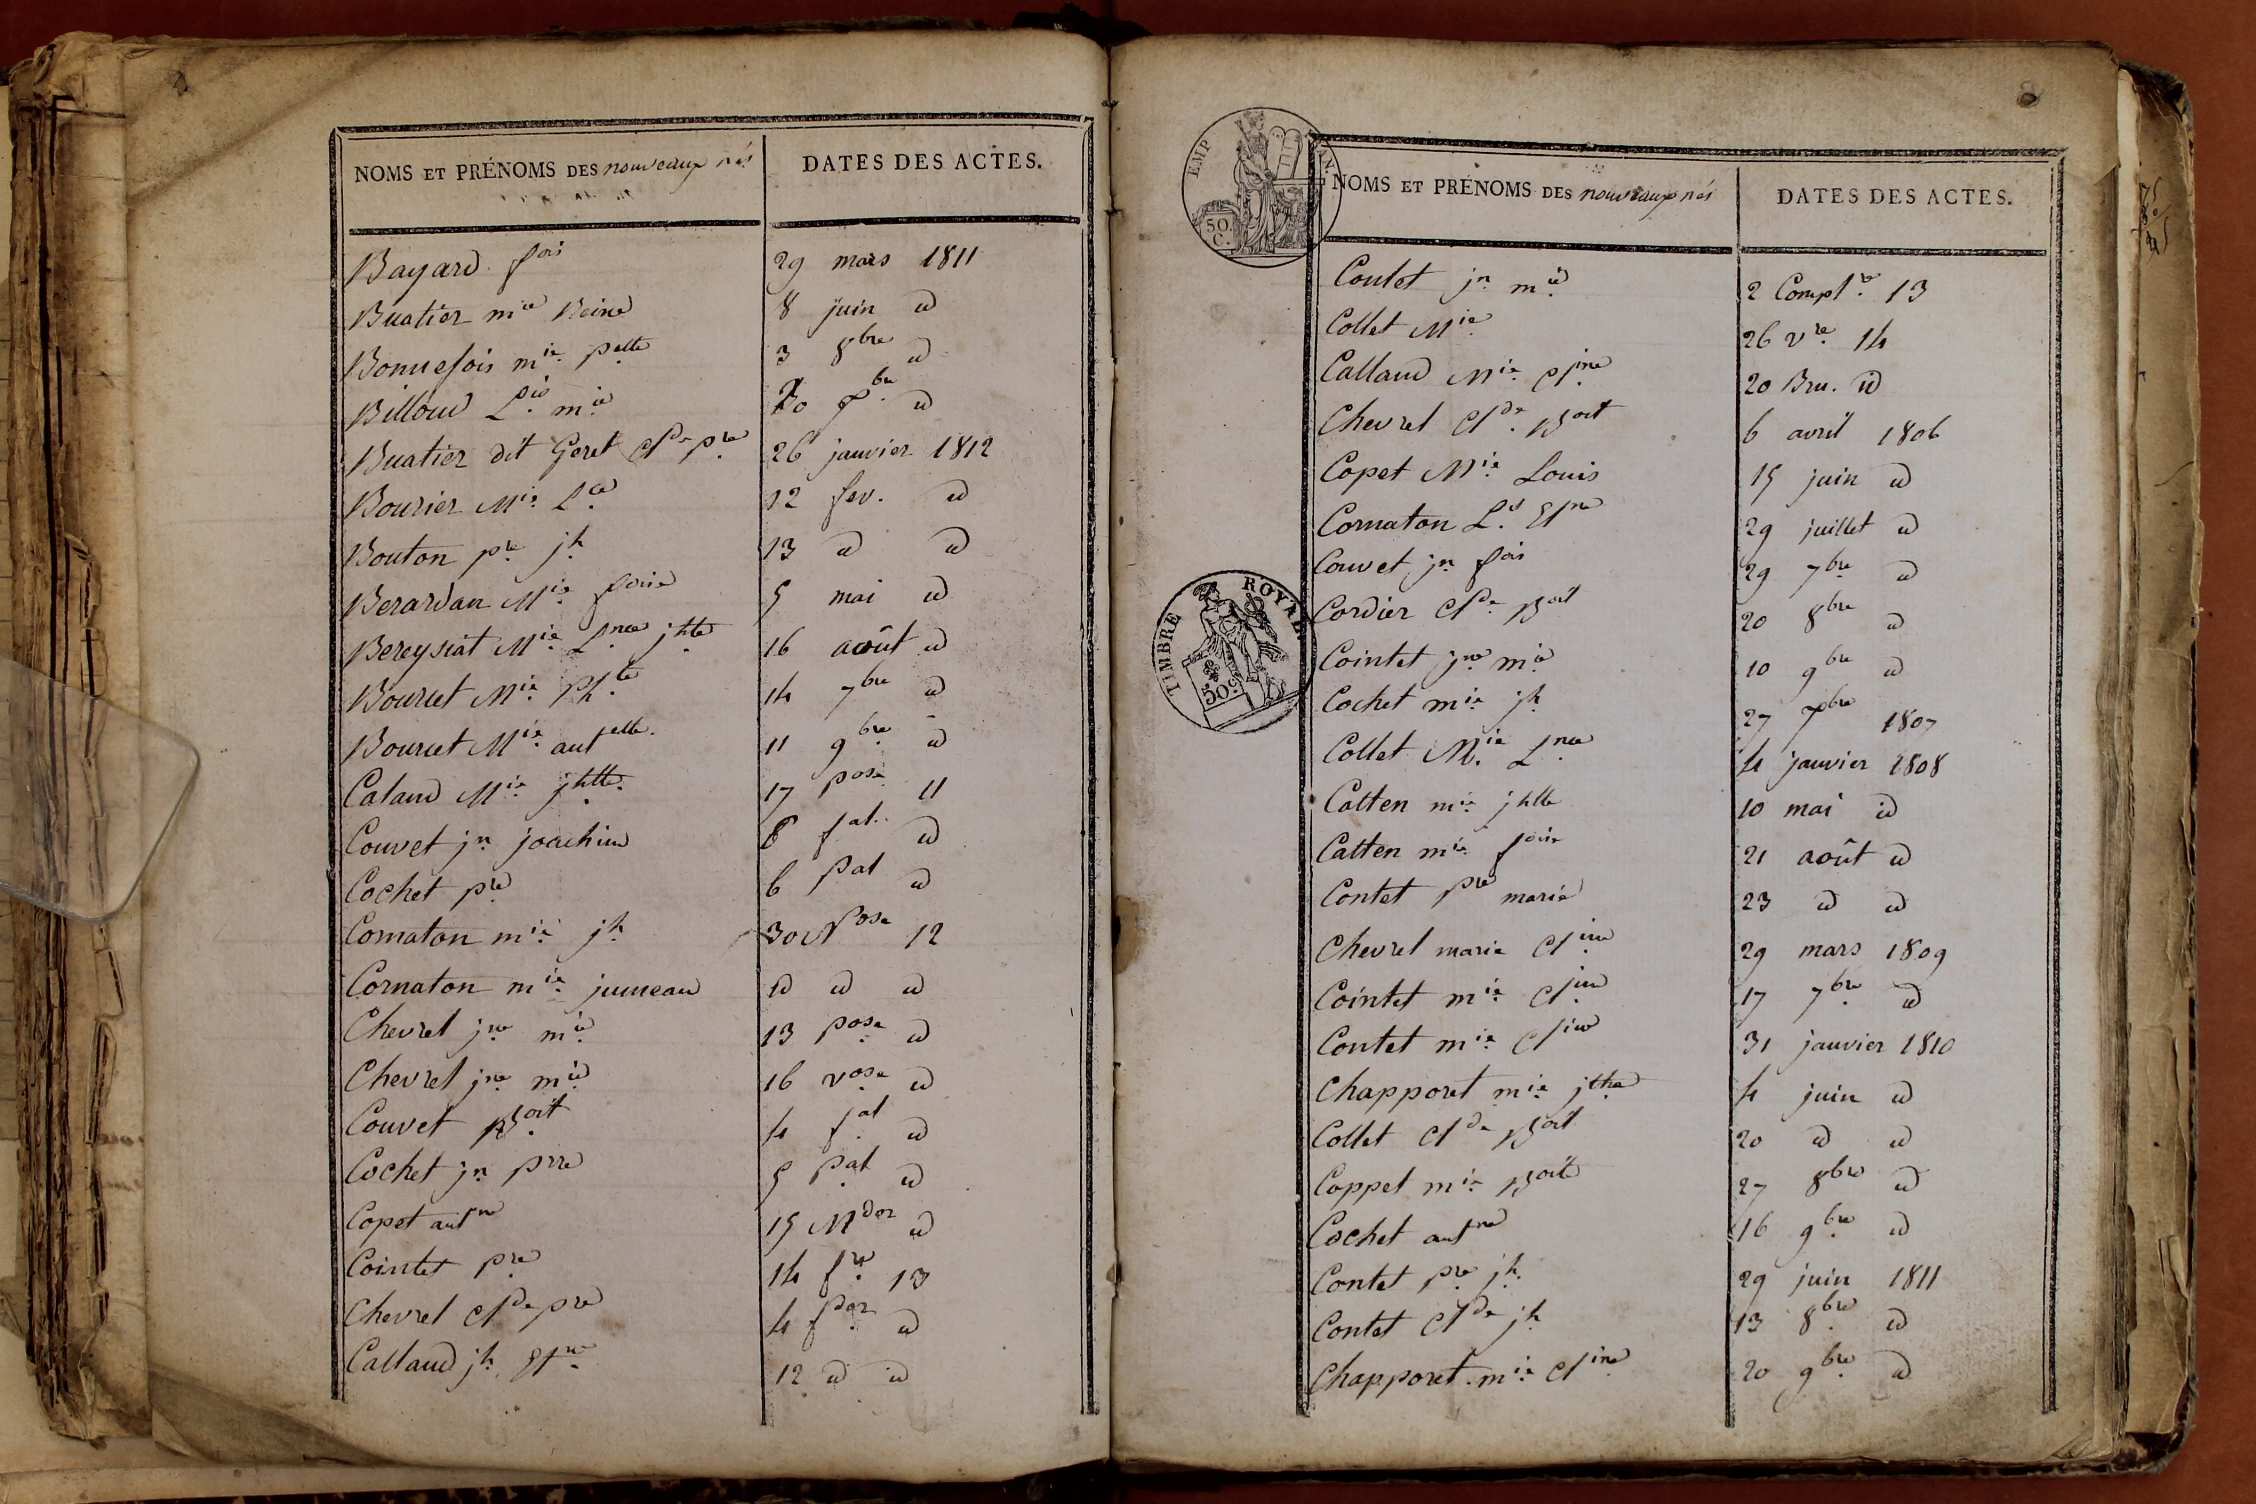 NOMS ET PRÉNOMS DES nouveaux nés DATES DES ACTES.
Bayard fois 29 mars 1811
Buatier mie Reine 8 juin id
Bonnefois mie pette 3 8bre id
Billoud Lis mie 20 bre id
Buatier dit Geret Clde pre 26 janvier 1812
Bourier Mie Lce 12 fev. id
Bouton pre jh 13 id id
Berardan Mie foise 5 mai id
Bereysiat Mie Lnce jhte 16 août id
Bourcet Mie Phte 14 7bre id
Bourcet Mie antette 11 9bre id
Caland Mie jhtte 17 pose 11
Couvet jn joachim 8 fal. id
Cochet pre 6 Pal id
Cornaton mie jh 30 Nose 12
Cornaton mie jumeau id id id
Chevrel jne mie 13 pose id
Chevrel jne mie 16 vose id
Couvet Boit 4 fal id
Cochet jn prre 5 Pal id
Copet antne 15 Mdor id
Cointet pre 14 fre 13
Chevrel Clde pre 4 fdor id
Calland jh Etne 12 id id
EMP
50.
C.
TIMBRE ROYAL
50c
8
NOMS ET PRÉNOMS DES nouveaux nés DATES DES ACTES.
Contet jn mie 2 Complre 13
Collet Mie 26 vre 14
Calland Mie Cline 20 Bru. id
Chevrel Clde Boit 6 avril 1806
Copet Mie Louis 15 juin id
Cornaton Ls Etne 29 juillet id
Couvet jn fois 29 7bre id
Cordier Clde Boit 20 8bre id
Cointet jne mie 10 9bre id
Cochet mie jh 27 bre 1807
Collet Mie Lnce 4 janvier 1808
Catten mie jhtte 10 mai id
Catten mie foise 21 août id
Contet Pre marie 23 id id
Chevrel marie Cline 29 mars 1809
Cointet mie Cline 17 7bre id
Contet mie Cline 31 janvier 1810
Chapporet mie jthe 4 juin id
Collet Clde Boit 20 id id
Coppet mie Boite 27 8bre id
Cochet antne 16 9bre id
Contet pre jh 29 juin 1811
Contet Clde jh 13 8bre id
Chapporet mie Cline 20 9bre id